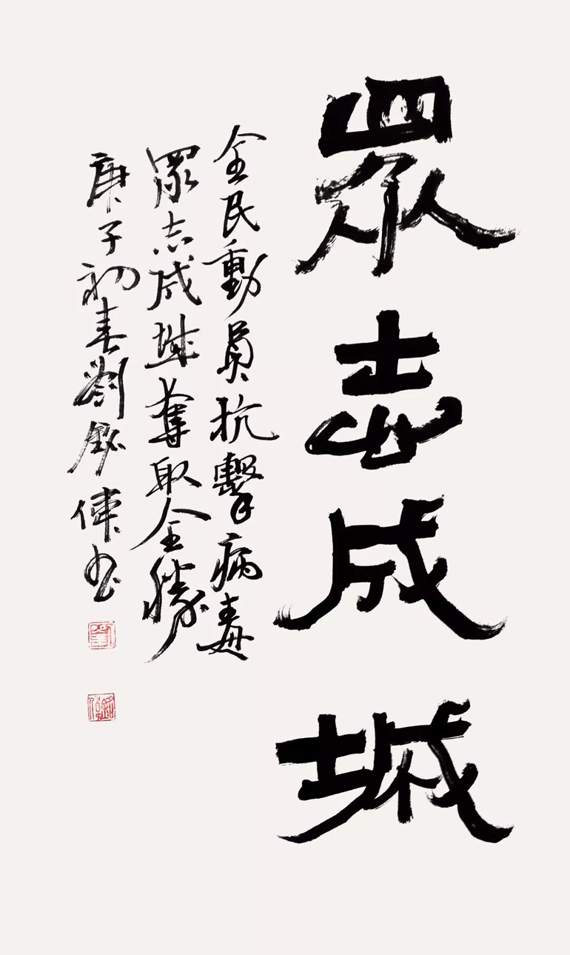 眾志成城
全民動員抗擊病毒
眾志成城奪取全勝
庚子初春劉 偉书